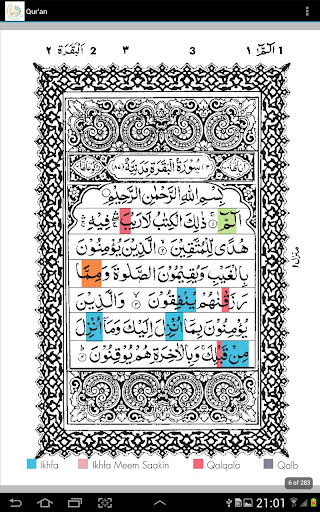 Qur'an
اَلْبَقَرَة ٢ 2 ٣ 3 ١ الٓمّٓ 1
سُوْرَةُ الْبَقَرَةِ مَدَنِيَّةٌ
بِسْمِ اللهِ الرَّحْمٰنِ الرَّحِيْمِ
الٓمّٓ ذٰلِكَ الْكِتٰبُ لَا رَيْبَ فِيْهِ
هُدًى لِّلْمُتَّقِيْنَ الَّذِيْنَ يُؤْمِنُوْنَ
بِالْغَيْبِ وَيُقِيْمُوْنَ الصَّلٰوةَ وَمِمَّا
رَزَقْنٰهُمْ يُنْفِقُوْنَ وَالَّذِيْنَ
يُؤْمِنُوْنَ بِمَا اُنْزِلَ اِلَيْكَ وَمَا اُنْزِلَ
مِنْ قَبْلِكَ وَبِالْاٰخِرَةِ هُمْ يُوْقِنُوْنَ
منزل١
Ikhfa Ikhfa Meem Saakin Qalqala Qalb
6 of 283
21:01